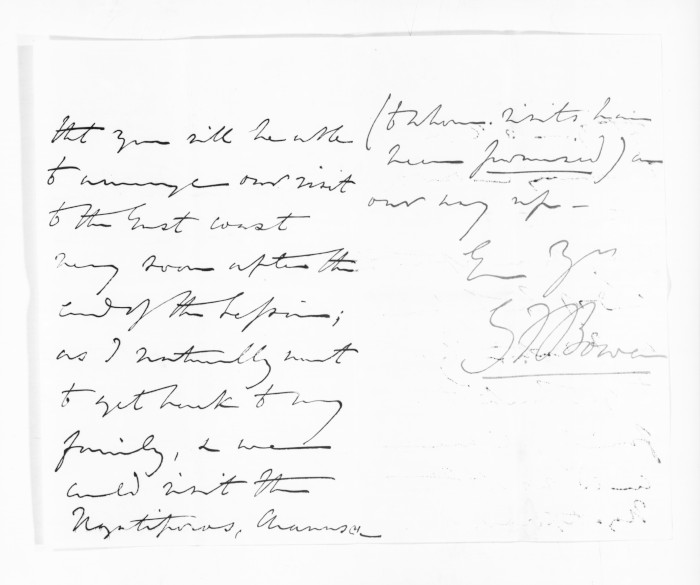 that you will be able
to arrange our visit
to the East Coast
very soon after the
end of the Session;
as I naturally want
to get back to my
family, & we
could visit the
Ngatiporous,
(to whom visits have
been promised) on
our way up –
Ev Yrs
G.F. Bowen